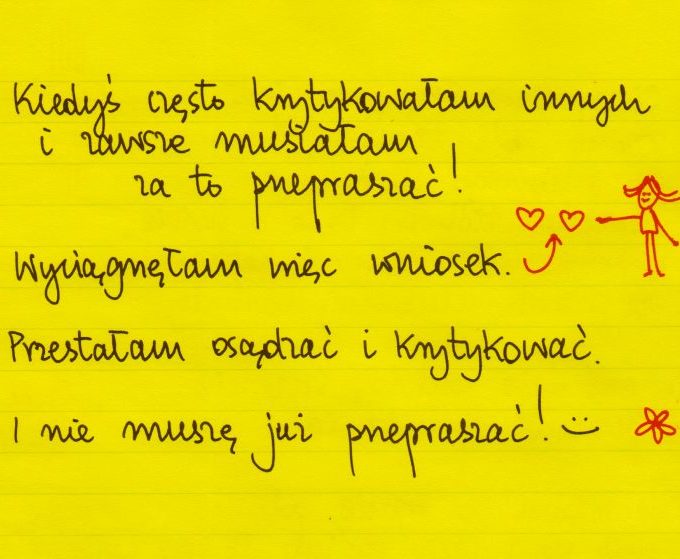 Kiedyś często krytykowałam innych
i zawsze musiałam
za to przepraszać!
Wyciągnęłam więc wniosek.
Przestałam osądzać i krytykować.
I nie muszę już przepraszać! :)